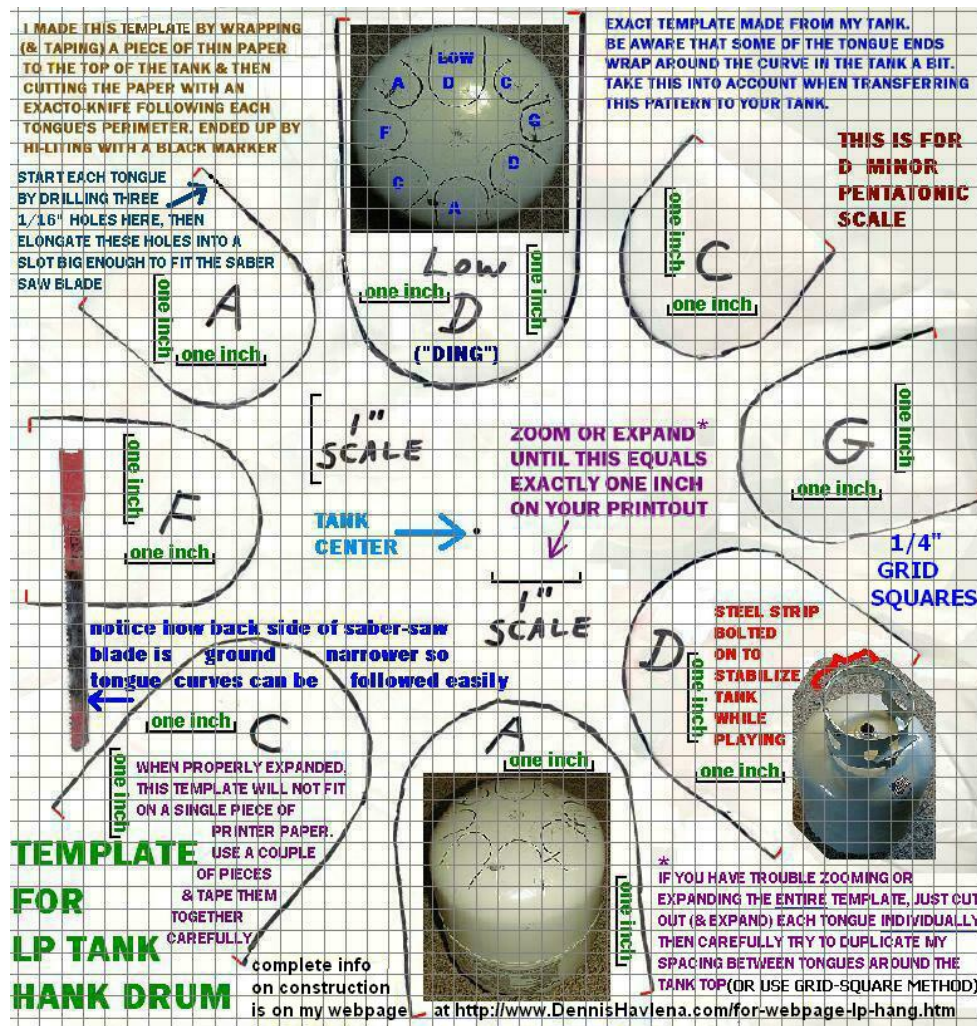 I MADE THIS TEMPLATE BY WRAPPING
(& TAPING) A PIECE OF THIN PAPER
TO THE TOP OF THE TANK & THEN
CUTTING THE PAPER WITH AN
EXACTO-KNIFE FOLLOWING EACH
TONGUE'S PERIMETER. ENDED UP BY
HI-LITING WITH A BLACK MARKER
START EACH TONGUE
BY DRILLING THREE
1/16" HOLES HERE, THEN
ELONGATE THESE HOLES INTO A
SLOT BIG ENOUGH TO FIT THE SABER
SAW BLADE
LOW
A
D
C
F
G
C
D
A
EXACT TEMPLATE MADE FROM MY TANK.
BE AWARE THAT SOME OF THE TONGUE ENDS
WRAP AROUND THE CURVE IN THE TANK A BIT.
TAKE THIS INTO ACCOUNT WHEN TRANSFERRING
THIS PATTERN TO YOUR TANK.
THIS IS FOR
D MINOR
PENTATONIC
SCALE
A
one inch
one inch
Low
D
one inch
one inch
("DING")
C
one inch
one inch
G
one inch
one inch
F
one inch
one inch
1"
SCALE
ZOOM OR EXPAND*
UNTIL THIS EQUALS
EXACTLY ONE INCH
ON YOUR PRINTOUT
TANK
CENTER
1"
SCALE
1/4"
GRID
SQUARES
notice how back side of saber-saw
blade is ground narrower so
tongue curves can be followed easily
D
one inch
one inch
STEEL STRIP
BOLTED
ON TO
STABILIZE
TANK
WHILE
PLAYING
C
one inch
one inch
A
one inch
one inch
WHEN PROPERLY EXPANDED,
THIS TEMPLATE WILL NOT FIT
ON A SINGLE PIECE OF
PRINTER PAPER.
USE A COUPLE
OF PIECES
& TAPE THEM
TOGETHER
CAREFULLY
TEMPLATE
FOR
LP TANK
HANK DRUM
*
IF YOU HAVE TROUBLE ZOOMING OR
EXPANDING THE ENTIRE TEMPLATE, JUST CUT
OUT (& EXPAND) EACH TONGUE INDIVIDUALLY
THEN CAREFULLY TRY TO DUPLICATE MY
SPACING BETWEEN TONGUES AROUND THE
TANK TOP(OR USE GRID-SQUARE METHOD)
complete info
on construction
is on my webpage at http://www.DennisHavlena.com/for-webpage-lp-hang.htm